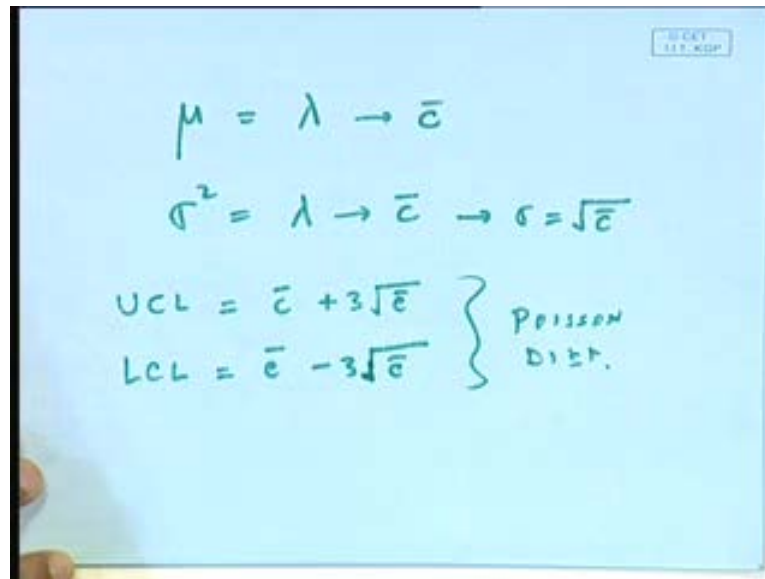 © CET
I.I.T. KGP
μ = λ → c̄
σ² = λ → c̄ → σ = √c̄
UCL = c̄ + 3√c̄
LCL = c̄ - 3√c̄
} POISSON
DIST.